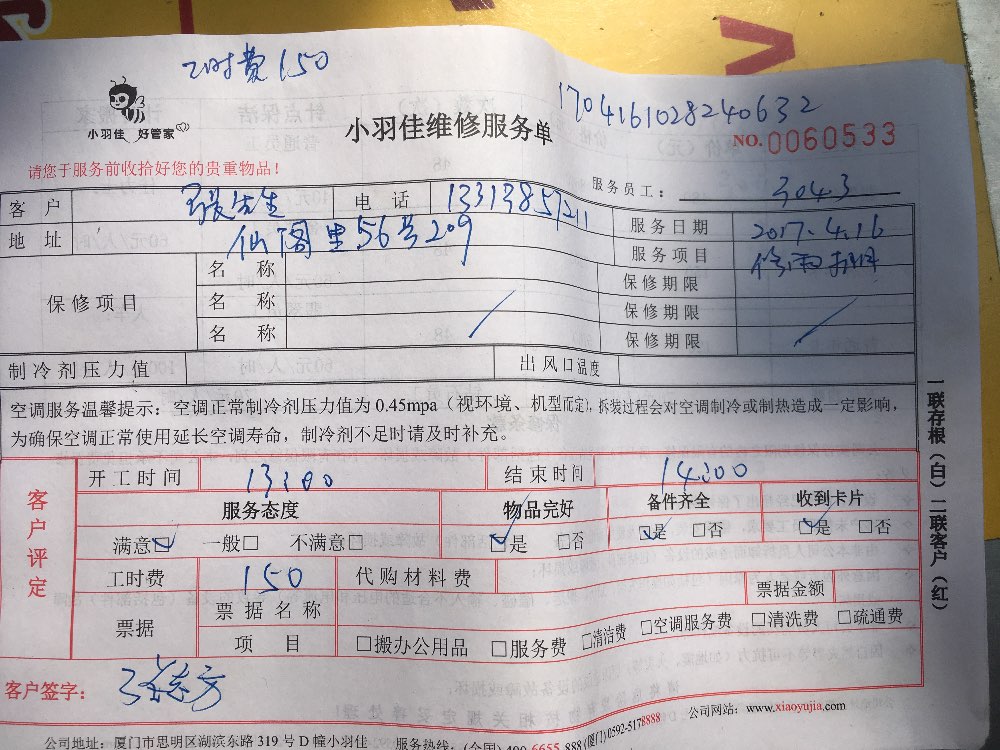 工时费150
小羽佳 好管家
小羽佳维修服务单
1704161028240632
NO.0060533
请您于服务前收拾好您的贵重物品!
服务员工: 3043
客户 张先生 电话 13313857211
服务日期 2017.4.16
地址 仙阁里56号209
服务项目
保修项目 名称 保修期限
名称 保修期限
名称 保修期限
制冷剂压力值 出风口温度
空调服务温馨提示:空调正常制冷剂压力值为0.45mpa(视环境、机型而定),拆装过程会对空调制冷或制热造成一定影响,
为确保空调正常使用延长空调寿命,制冷剂不足时请及时补充。
客户评定
开工时间 13:00 结束时间 14:00
服务态度 物品完好 备件齐全 收到卡片
满意☑ 一般□ 不满意□ ☑是 □否 ☑是 □否 ☑是 □否
工时费 150 代购材料费
票据 票据名称 票据金额
项目 □搬办公用品 □服务费 □清洁费 □空调服务费 □清洗费 □疏通费
客户签字:
公司网站:www.xiaoyujia.com
公司地址:厦门市思明区湖滨东路319号D幢小羽佳 服务热线:(全国)400 6655 888 (厦门)0592-5178888
一联存根(白)二联客户(红)